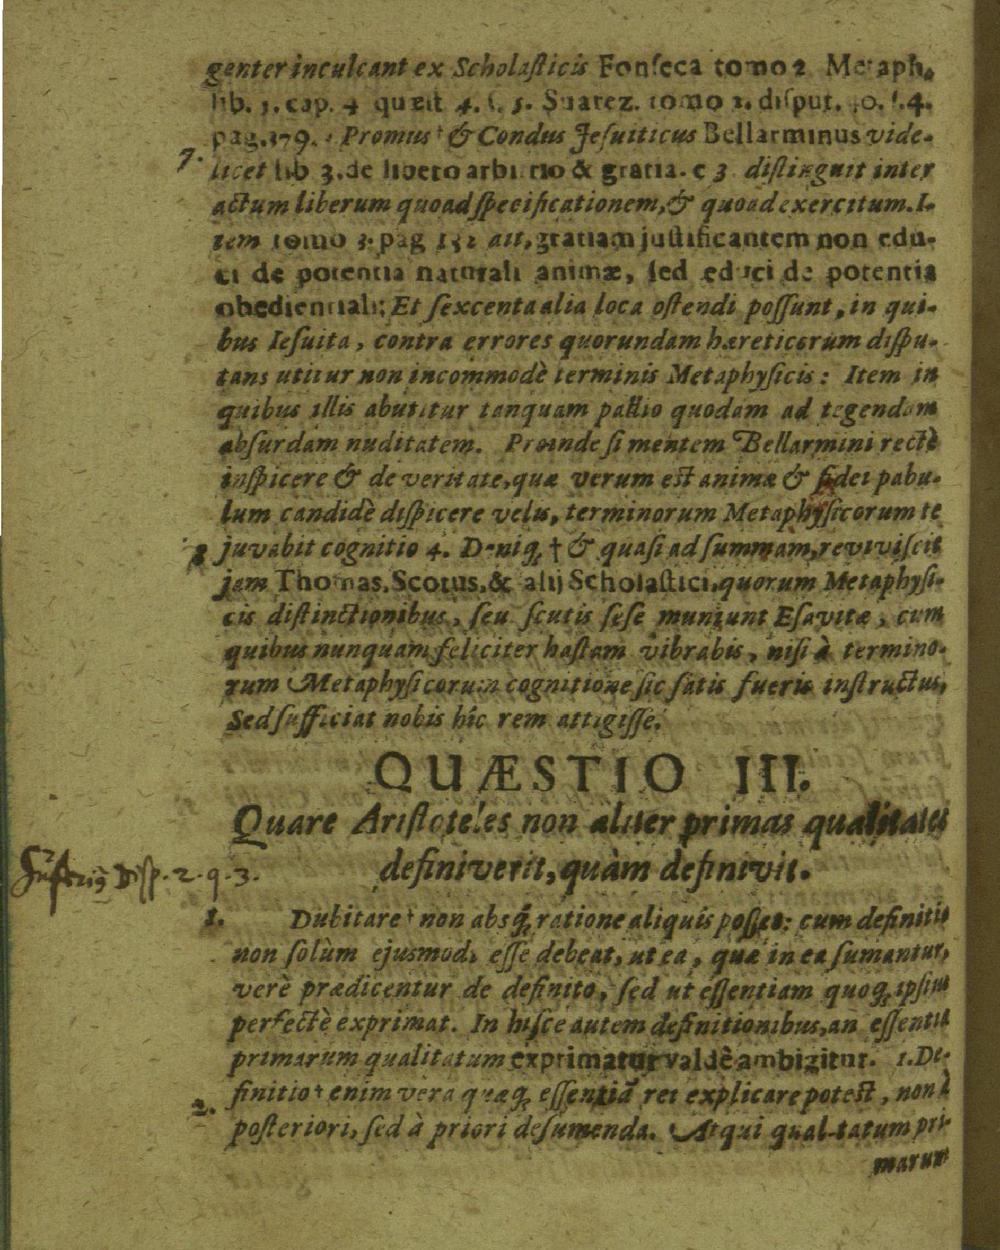 genter inculcant ex Scholaſticis Fonſeca tomo 2 Metaph.
lib. 5. cap. 4 quæſt 4. ſ. 5. Suarez. tomo 1. diſput. ſ.4.
pag. Promus † & Condus Jeſuiticus Bellarminus vide-
7. licet lib 3. de libero arbitrio & gratia. c 3 diſtinguit inter
actum liberum quoad ſpecificationem, & quoad exercitum. I-
tem tomo 3. pag ait, gratiam juſtificantem non edu-
ci de potentia naturali animæ, ſed educi de potentia
obedientiali: Et ſexcenta alia loca oſtendi poſſunt, in qui-
bus Ieſuita, contra errores quorundam hæreticorum diſpu-
tans utitur non incommodè terminis Metaphyſicis: Item in
quibus illis abutitur tanquam pallio quodam ad tegendam
abſurdam nuditatem. Proinde ſi mentem Bellarmini rectè
inſpicere & de veritate, quæ verum eſt animæ & fidei pabu-
lum candidè diſpicere velis, terminorum Metaphyſicorum te
8 juvabit cognitio 4. Deniq; † & quaſi ad ſummam, reviviſcit
jam Thomas, Scotus, & alij Scholaſtici, quorum Metaphyſi-
cis diſtinctionibus, ſeu ſcutis ſeſe muniunt Eſavitæ, cum
quibus nunquam feliciter haſtam vibrabis, niſi à termino-
rum Metaphyſicorum cognitione ſic ſatis fueris inſtructus,
Sed ſufficiat nobis hîc rem attigiſſe.
QUÆSTIO III.
Quare Ariſtoteles non aliter primas qualitates
definiverit, quàm definivit.
Diſp. 2. q. 3.
1. Dubitare † non absq; ratione aliquis poſſet: cum definitio
non ſolùm ejusmodi eſſe debeat, ut ea, quæ in ea ſumantur,
verè prædicentur de definito, ſed ut eſſentiam quoq; ipſius
perfectè exprimat. In hiſce autem definitionibus, an eſſentia
primarum qualitatum exprimatur valdè ambigitur. 1. De-
finitio † enim vera quæq; eſſentiā rei explicare poteſt, non à
2. poſteriori, ſed à priori deſumenda. Atqui qualitatum pri-
marum